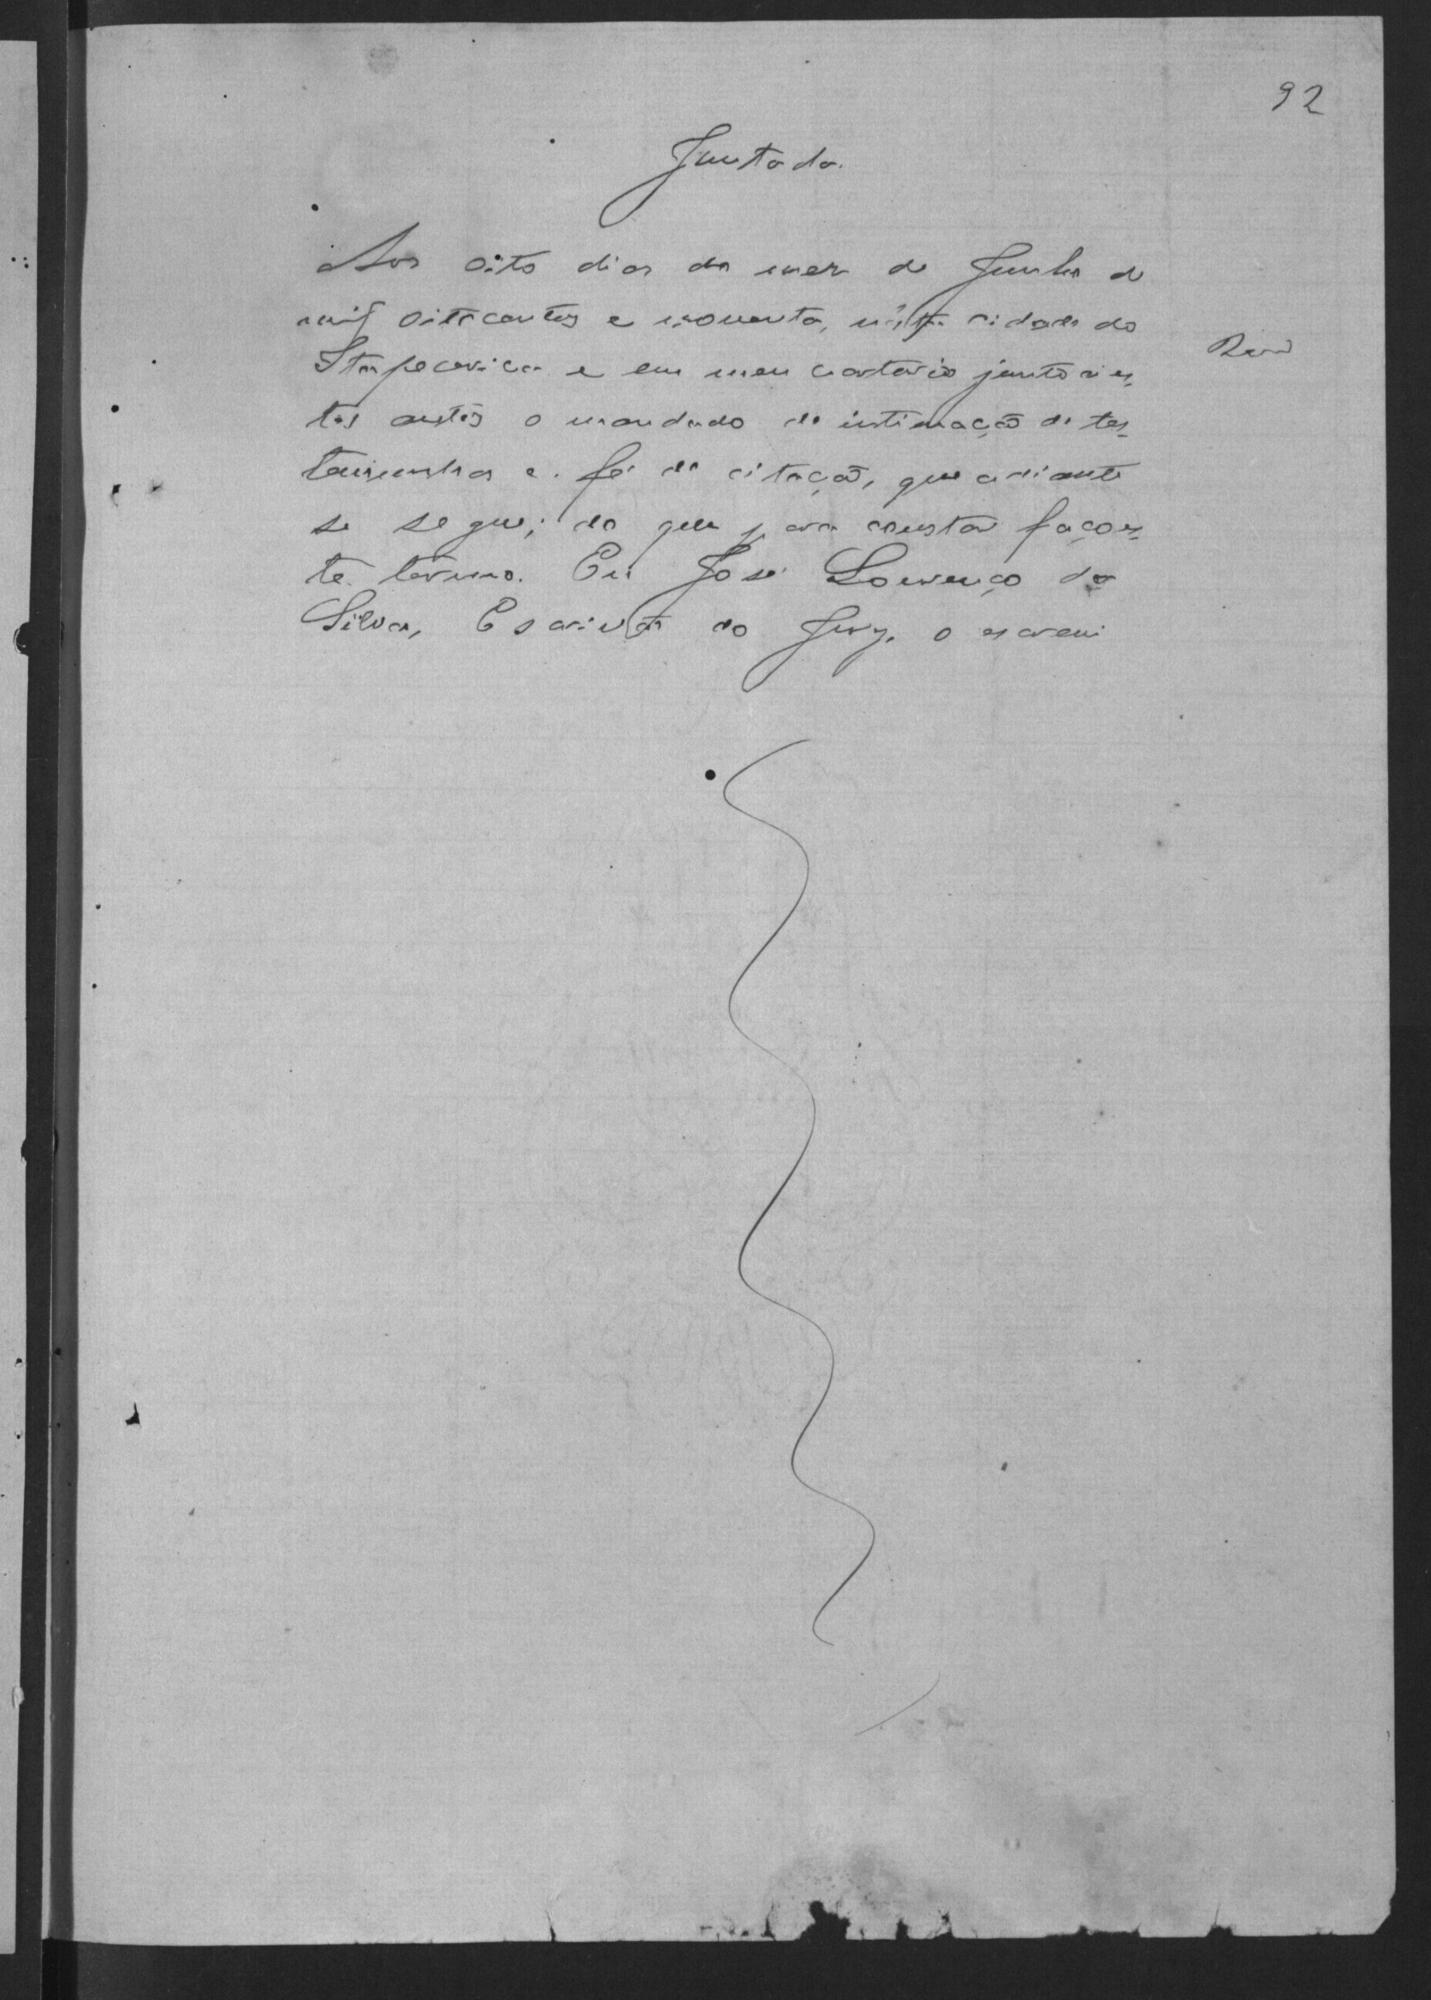 92
Juntada.
Aos oito dias do mez de Junho de
mil oitocentos e noventa, nésta cidade do
Itapecerica e em meu cartorio junto a es-
tes autos o mandado de intimação de tes-
temunhas e fé de citação, que adiante
se segue; do que para constar faço es-
te termo. Eu José Lourenço da
Silva, Escrivão do Jury, o escrevi